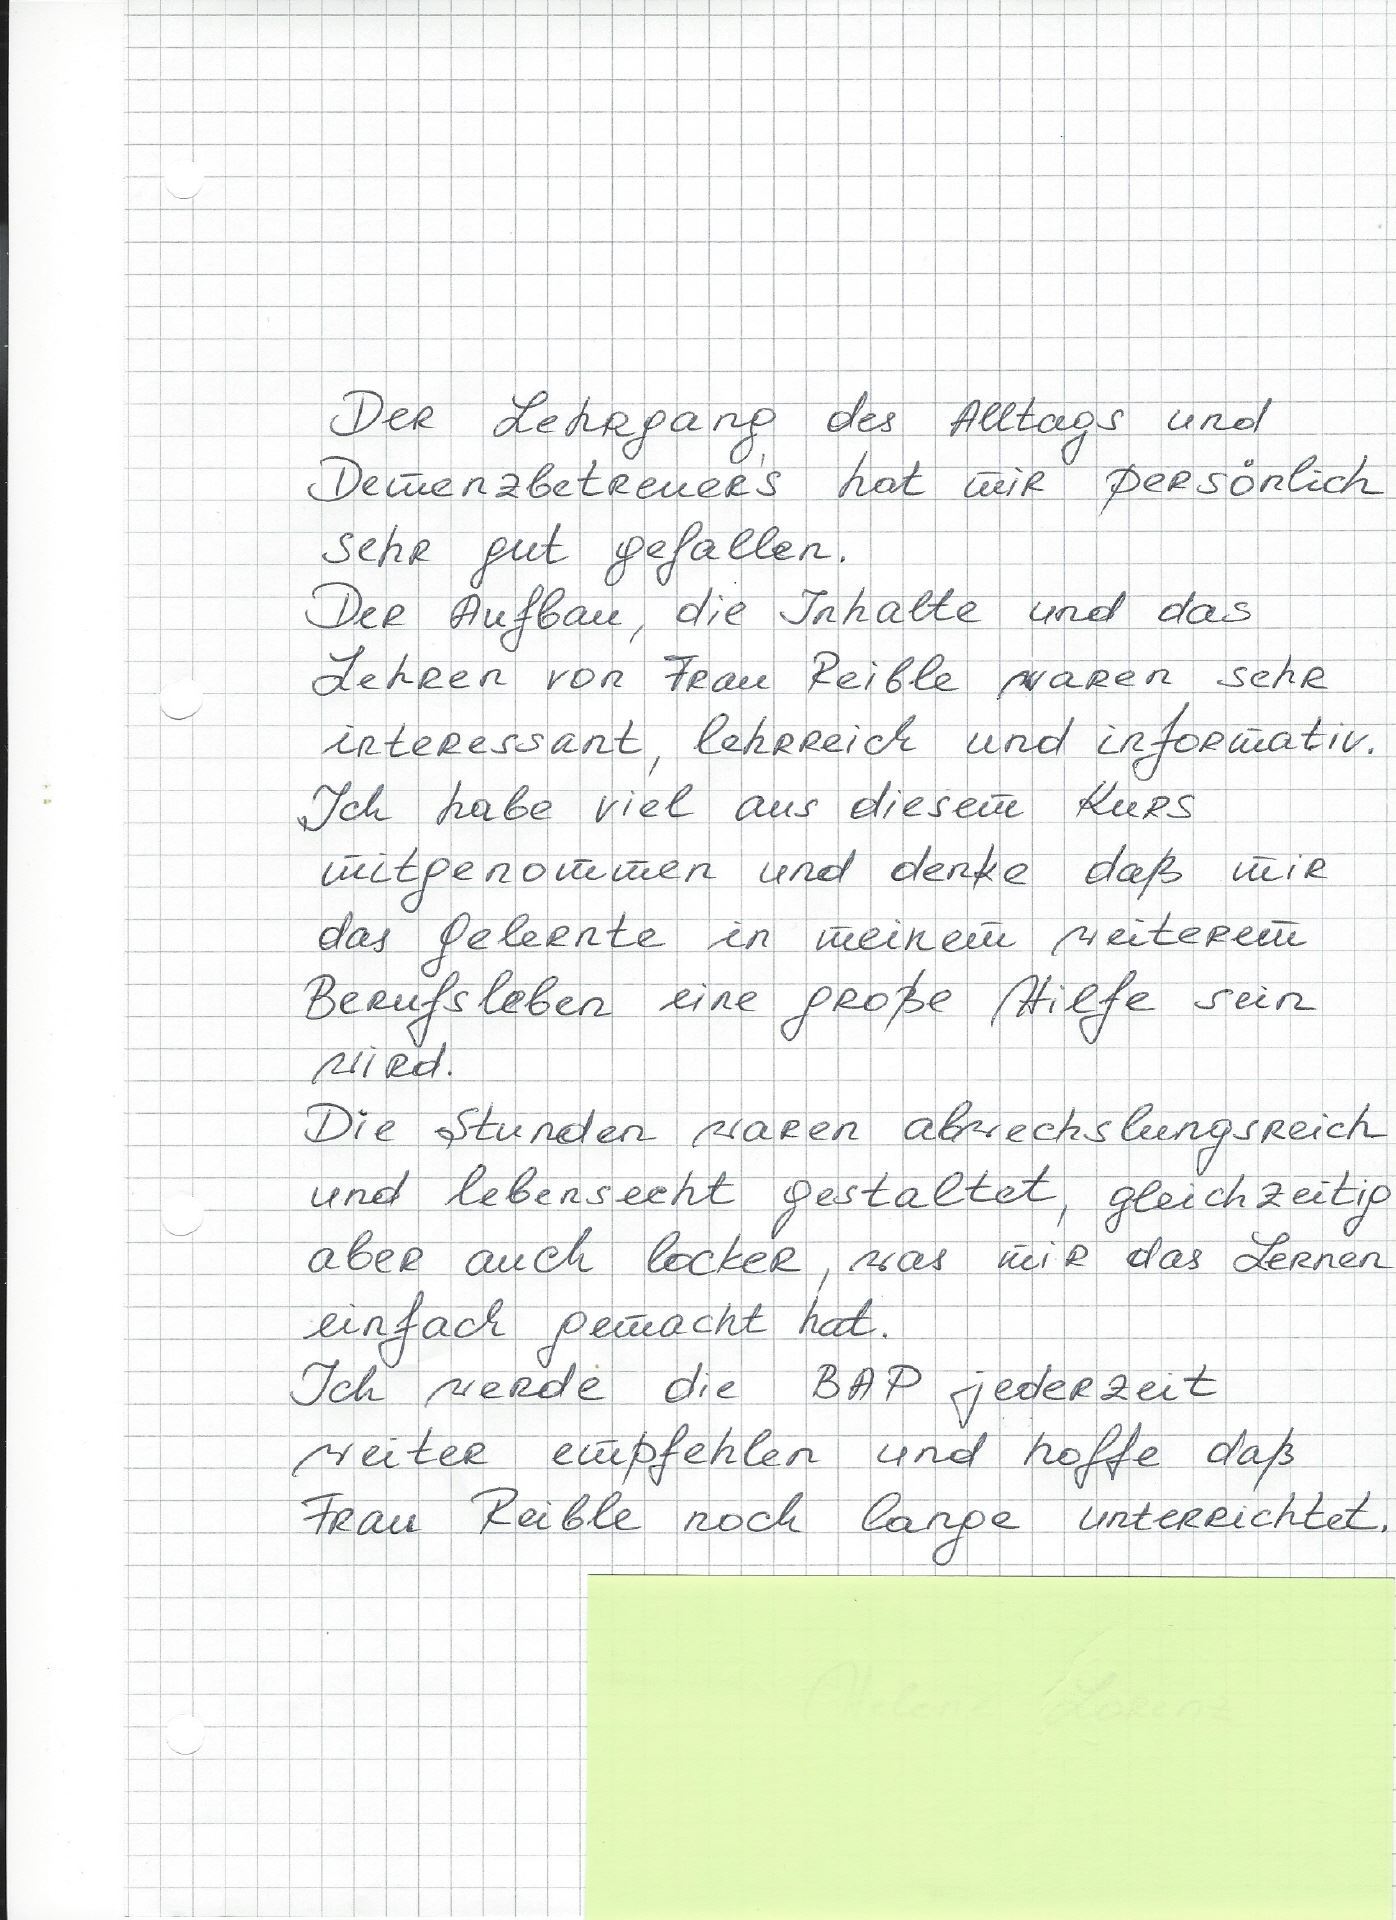 Der Lehrgang des Alltags und
Demenzbetreuer's hat mir persönlich
sehr gut gefallen.
Der Aufbau, die Inhalte und das
Lehren von Frau Reible waren sehr
interessant, lehrreich und informativ.
Ich habe viel aus diesem Kurs
mitgenommen und denke daß mir
das Gelernte in meinem weiterem
Berufsleben eine große Hilfe sein
wird.
Die Stunden waren abwechslungsreich
und lebensecht gestaltet, gleichzeitig
aber auch locker, was mir das Lernen
einfach gemacht hat.
Ich werde die BAP jederzeit
weiter empfehlen und hoffe daß
Frau Reible noch lange unterrichtet.